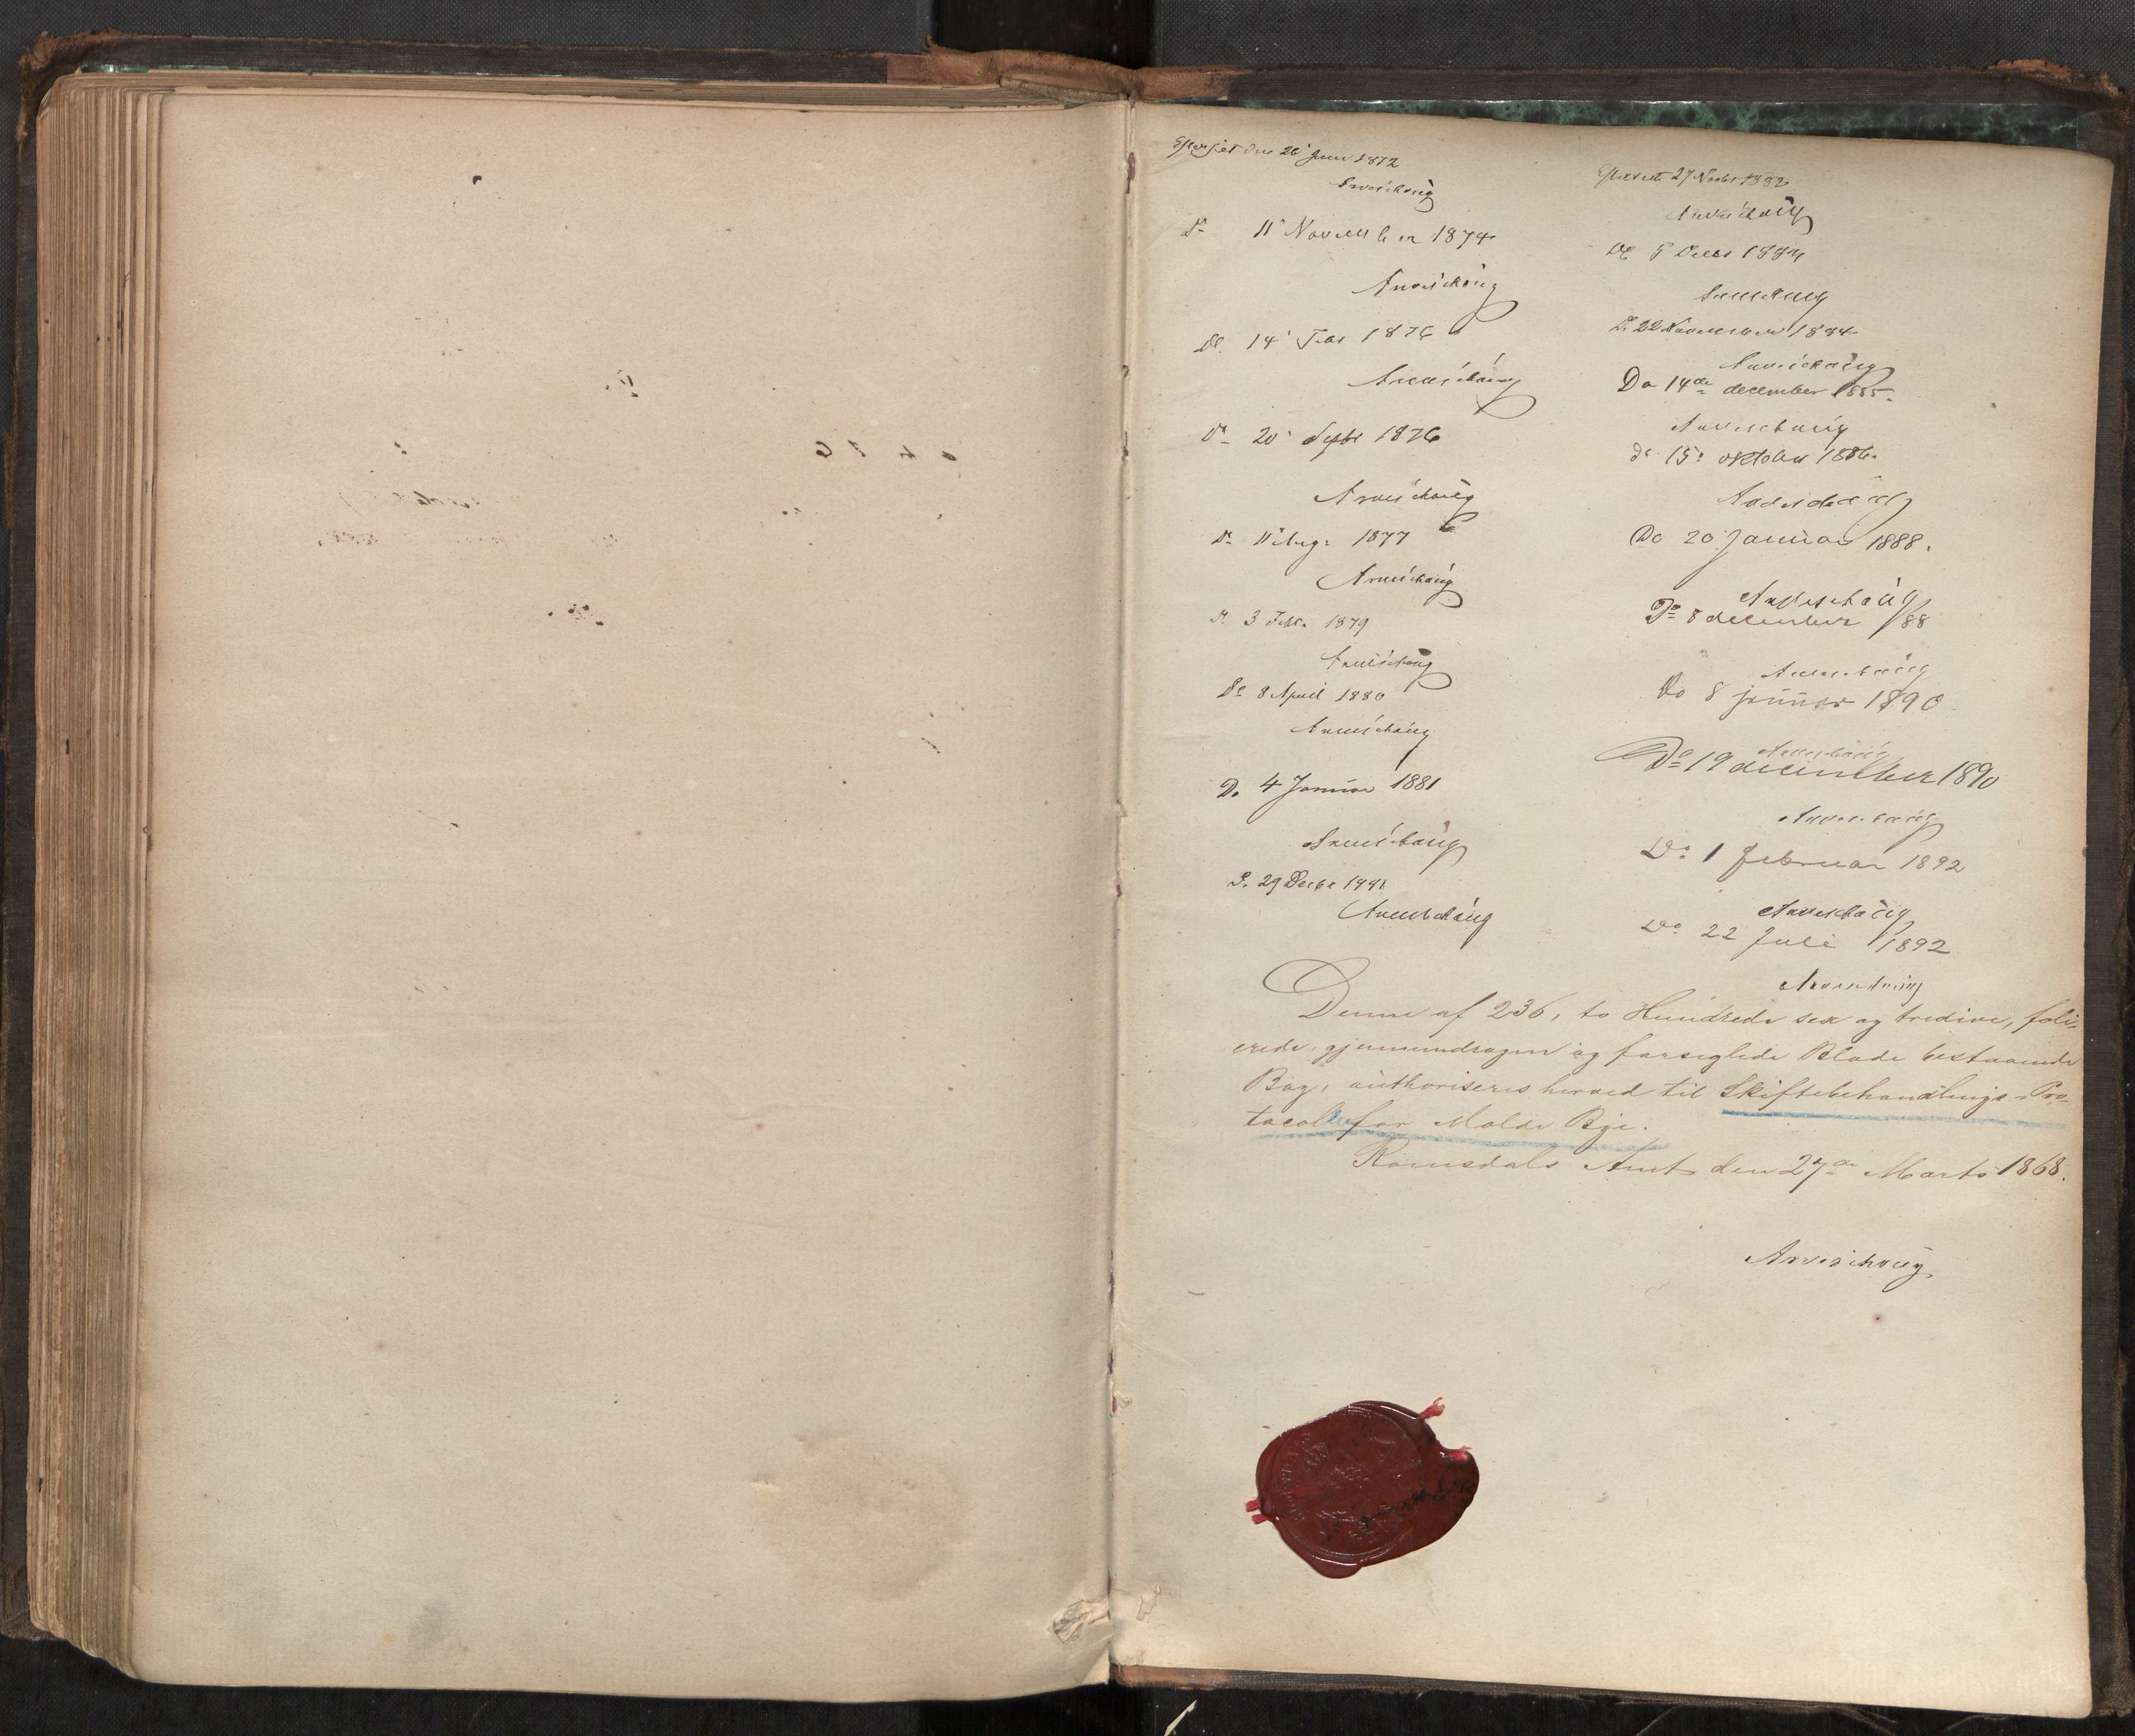 Efterseet den 26' Juni 1872
Arveschoug
Do 11' November 1874
Arveschoug
Do 14' Febr 1876
Arveschoug
Do 20' Septbr 1876
Arveschoug
Do 11' Aug: 1877
Arveschoug
Do 3 Febr. 1879
Arveschoug
Do 8 April 1880
Arveschoug
Do 4 Januar 1881
Arveschoug
Do 29 Decbr 1881
Arveschoug
Efterseet 27 Novbr 1882
Arveschoug
Do 5 Decbr
Arveschoug
Do 22 November 1884
Arveschoug
Do 14de december 1885.
Arveschoug
do 15: oktober 1886.
Arveschoug
Do 20 Januar 1888.
Arveschoug
Do 8 december /88
Arveschoug
Do 8 januar 1890
Arveschoug
Do 19 december 1890
Arveschoug
Do 1 februar 1892
Arveschoug
Do 22 Juli 1892
Arveschoug
Denne af 236, to Hundrede sex og tredive, foli-
erede, gjennemdragne og forseglede Blade bestaaende
Bog, authoriseres herved til Skiftebehandlings-Pro-
tocol for Molde Bye.
Romsdals Amt den 27de Marts 1868.
Arveschoug